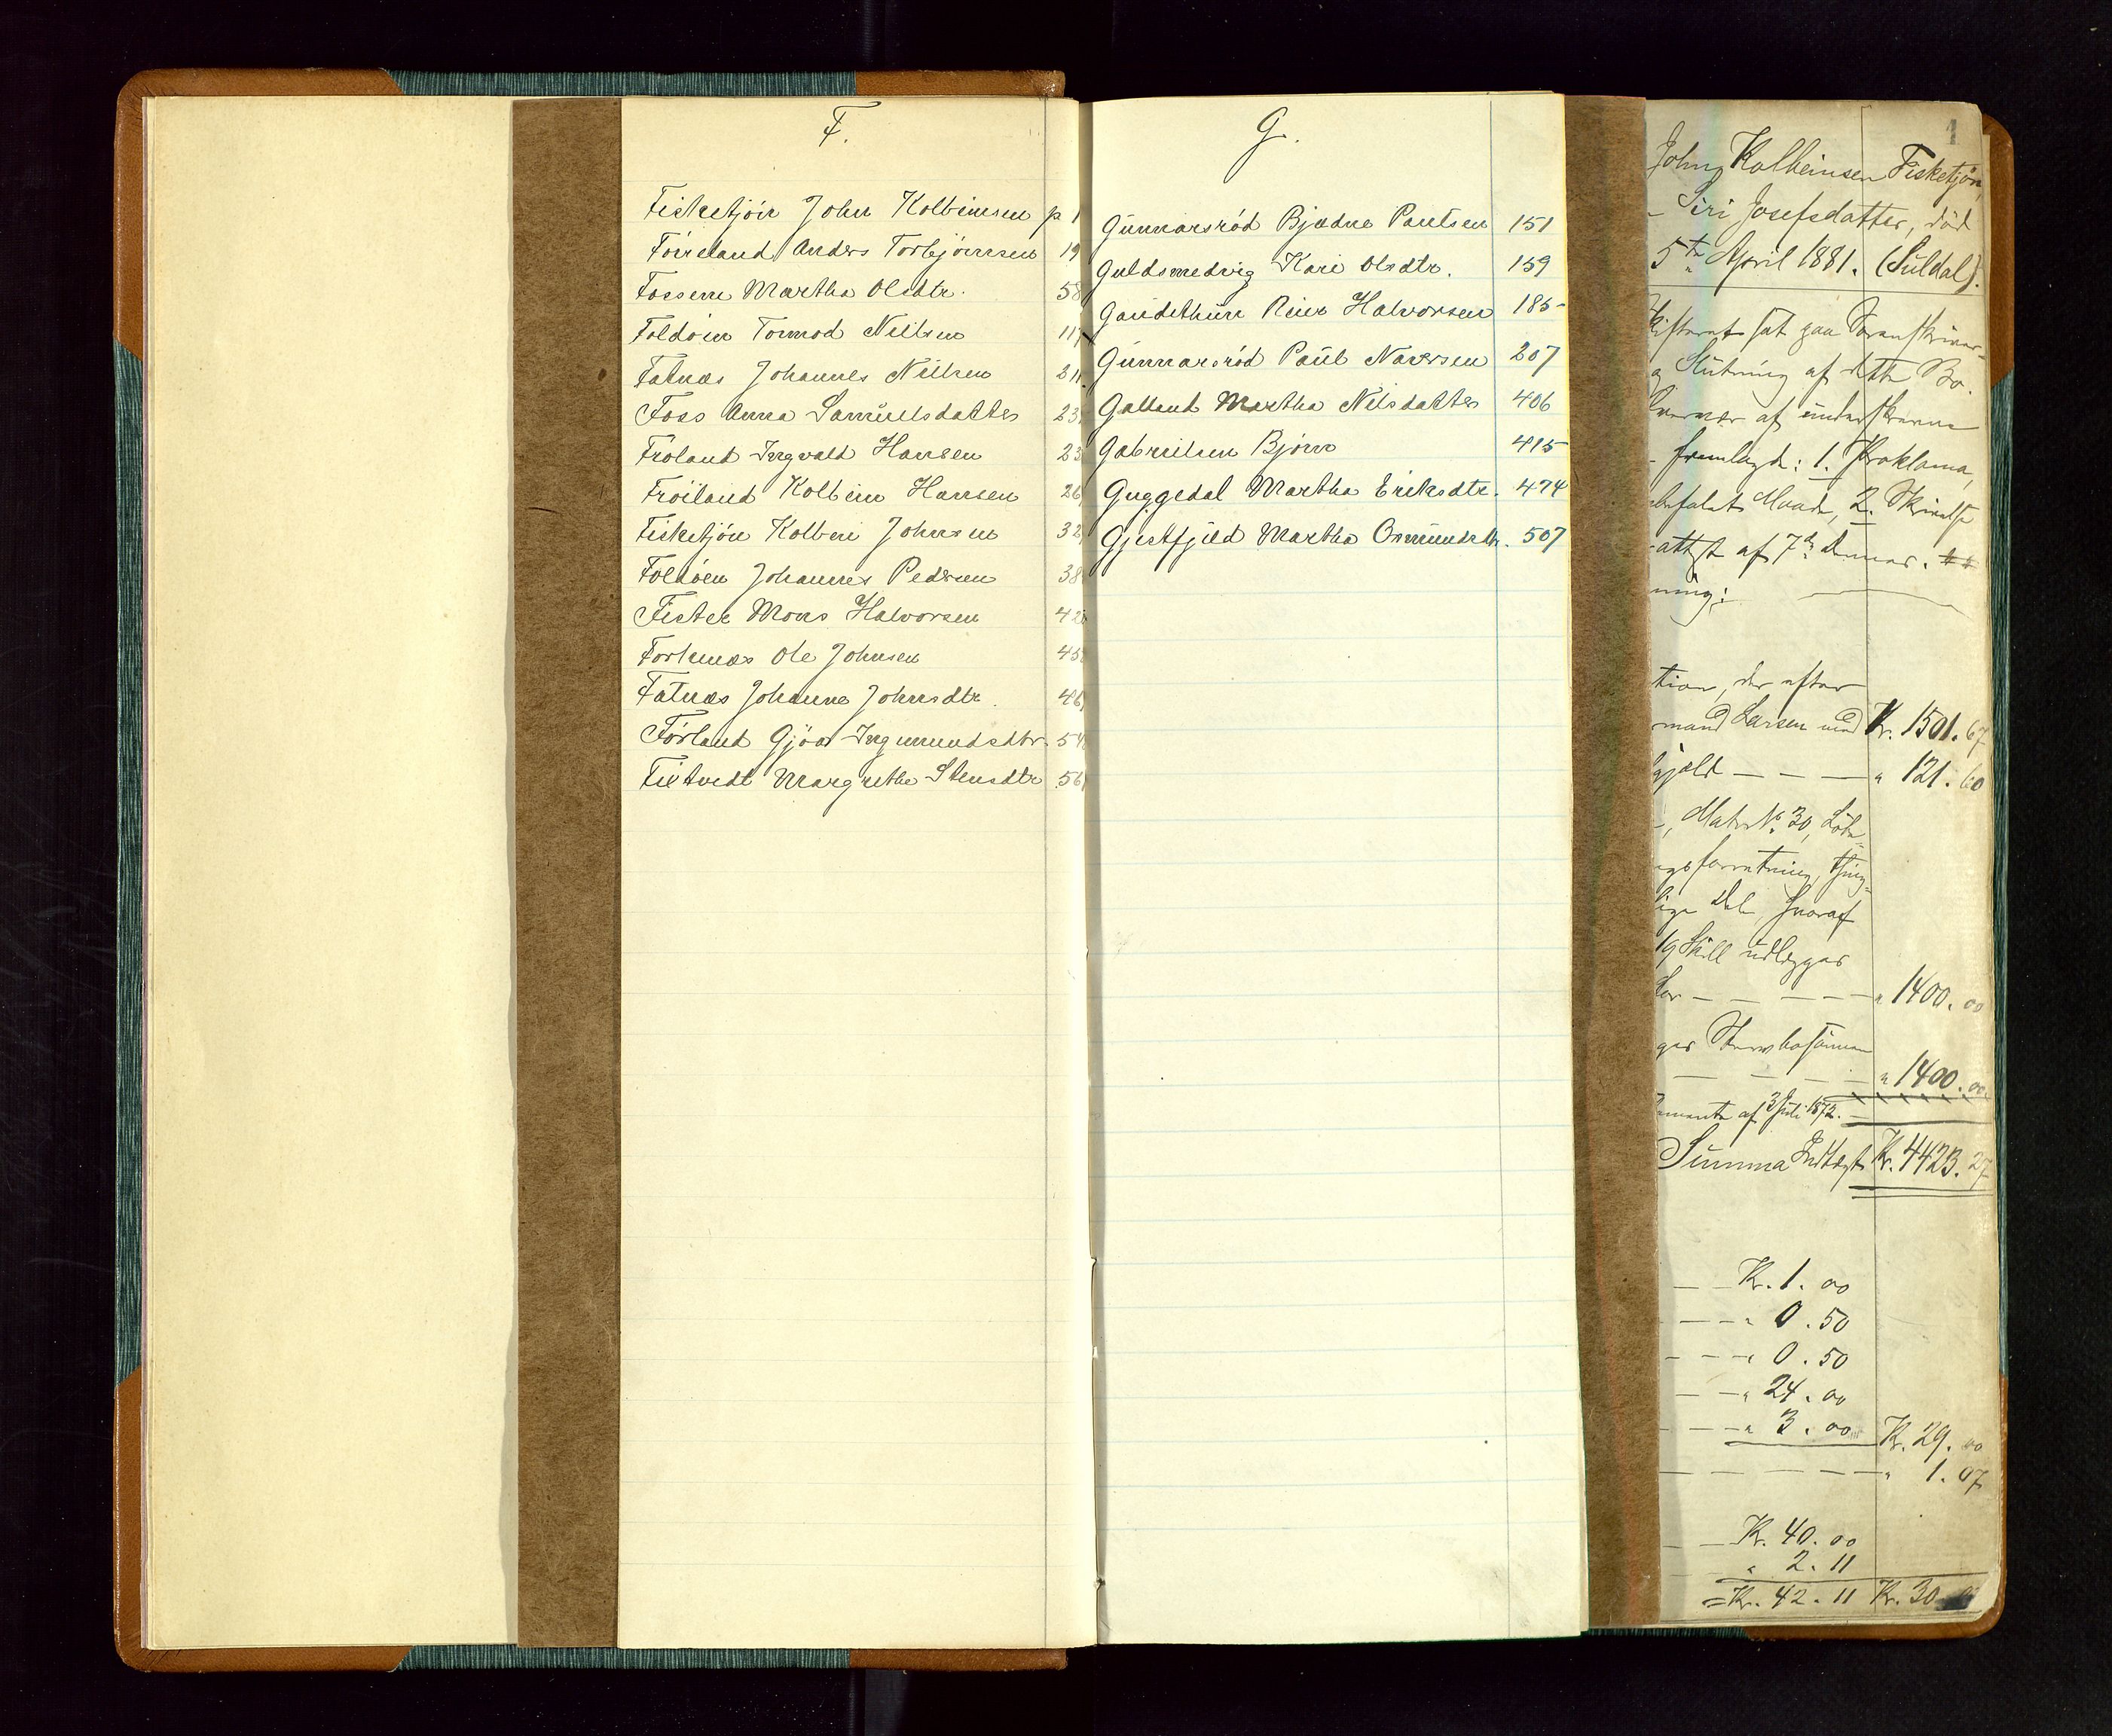 F.
Fisketjön John Kolbeinsen p 1
Föreland Anders Torbjörnsen 19
Fossene Martha Olsdtr. 58
Foldöen Tormod Nielsen 117
Fatnæs Johannes Nielsen 211
Foss Anna Samuelsdatter 23
Fröland Ingvald Hansen 23
Fröiland Kolbein Hansen 26
Fisketjön Kolben Johnsen 32
Foldöen Johannes Pedersen 38
Fister Mons Halvorsen 42
Forknæs Ole Johnsen 45
Fatnæs Johanne Johnsdtr. 46
Förland Gjöa Ingmundsdtr. 54
Fletvedt Margrethe Stensdtr 56
G.
Gunnarsröd Bjædne Paulsen 151
Guldsmedvig Kari Olsdtr. 159
Halvorsen 185
Gunnarsröd Paul Naversen 207
Galland Martha Nilsdatter 406
Gabrielsen Björn 415
Guggedal Martha Eriksdtr. 474
Gjestfjeld Martha Osmundsdtr. 507
1
John Kolbeinsen Fisketjön,
Siri Josefsdatter, död
5te April 1881. (Suldal).
Slutning af dette Bo.
af
fremlagde: 1. Proklama,
Maade, 2. Skifte
af 7de dennes.
ning:
tion, der efter
mand Larsen med Kr. 1501.67
gjeld — — — " 121.60
, Matr. No. 30, Löbe
forretning, thing-
lige Del, hvoraf
19 Skill udlægges
for — — — — — " 1400.00
ger
— — — — " 1400.00
af 3 Juli 1872.
Summa Indtægt Kr. 4423.27
— — Kr. 1.00
— — — " 0.50
— — — " 0.50
— — " 24.00
— — — " 3.00 Kr. 29.00
— — — — — " 1.07
— — Kr. 40.00
" 2.11
= Kr. 42.11 Kr. 30